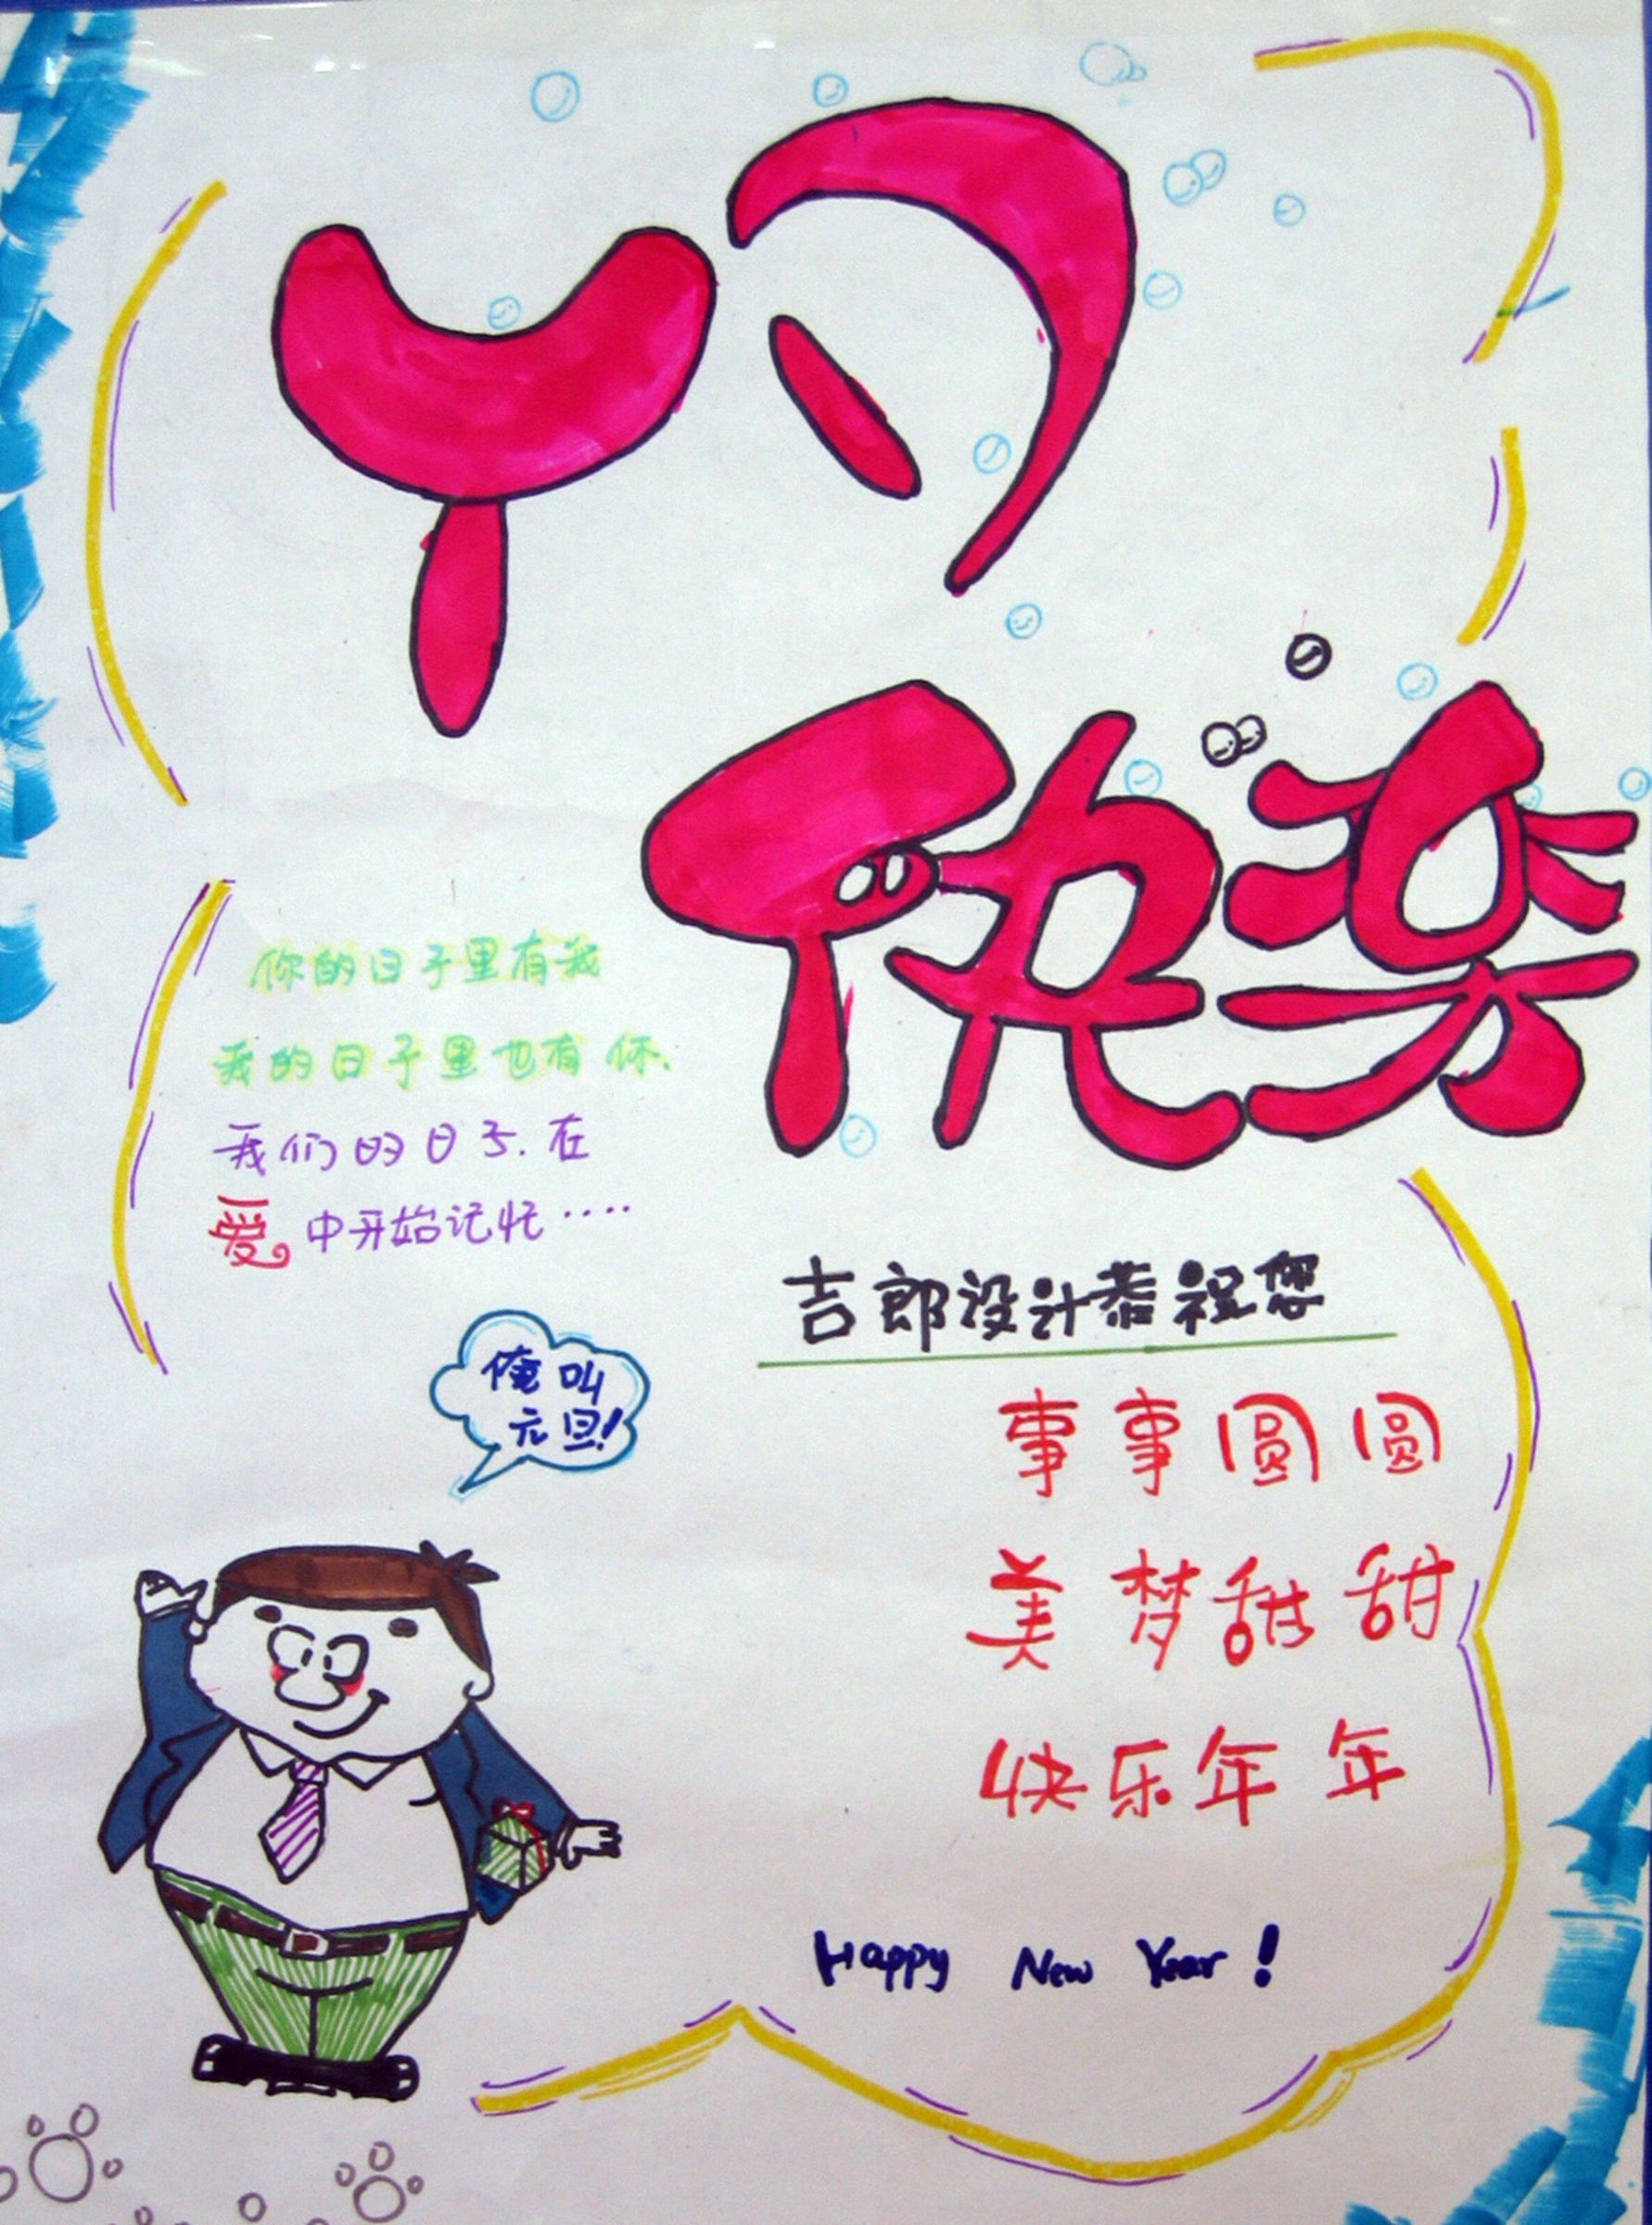 快乐
你的日子里有我
我的日子里也有你.
我们的日子.在
爱中开始记忆····
吉郎设计恭祝您
俺叫
元旦!
事事圆圆
美梦甜甜
快乐年年
Happy New Year!